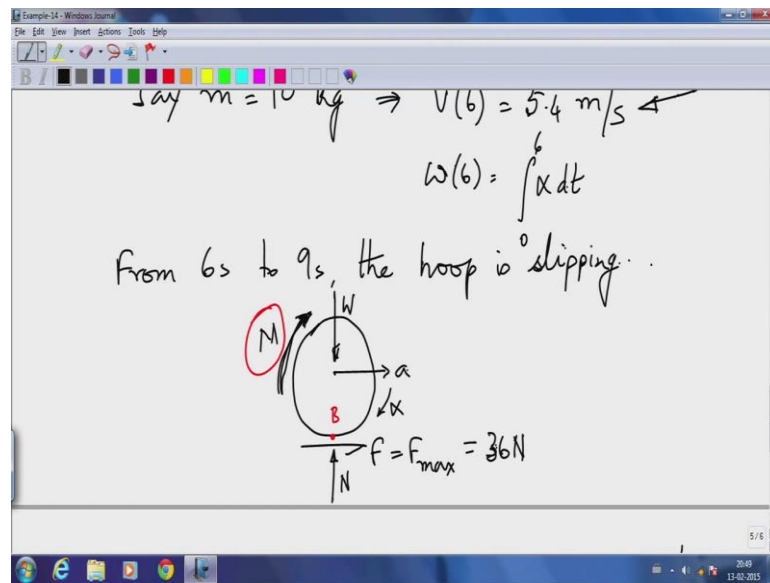 Example-14 - Windows Journal
File Edit View Insert Actions Tools Help
B I
Say m = 10 Kg ⇒ V(6) = 5.4 m/s
ω(6) = ∫₀⁶ α dt
From 6s to 9s, the hoop is slipping..
W
M
a
α
B
f = Fmax = 36N
N
5/6
20:49
13-02-2015